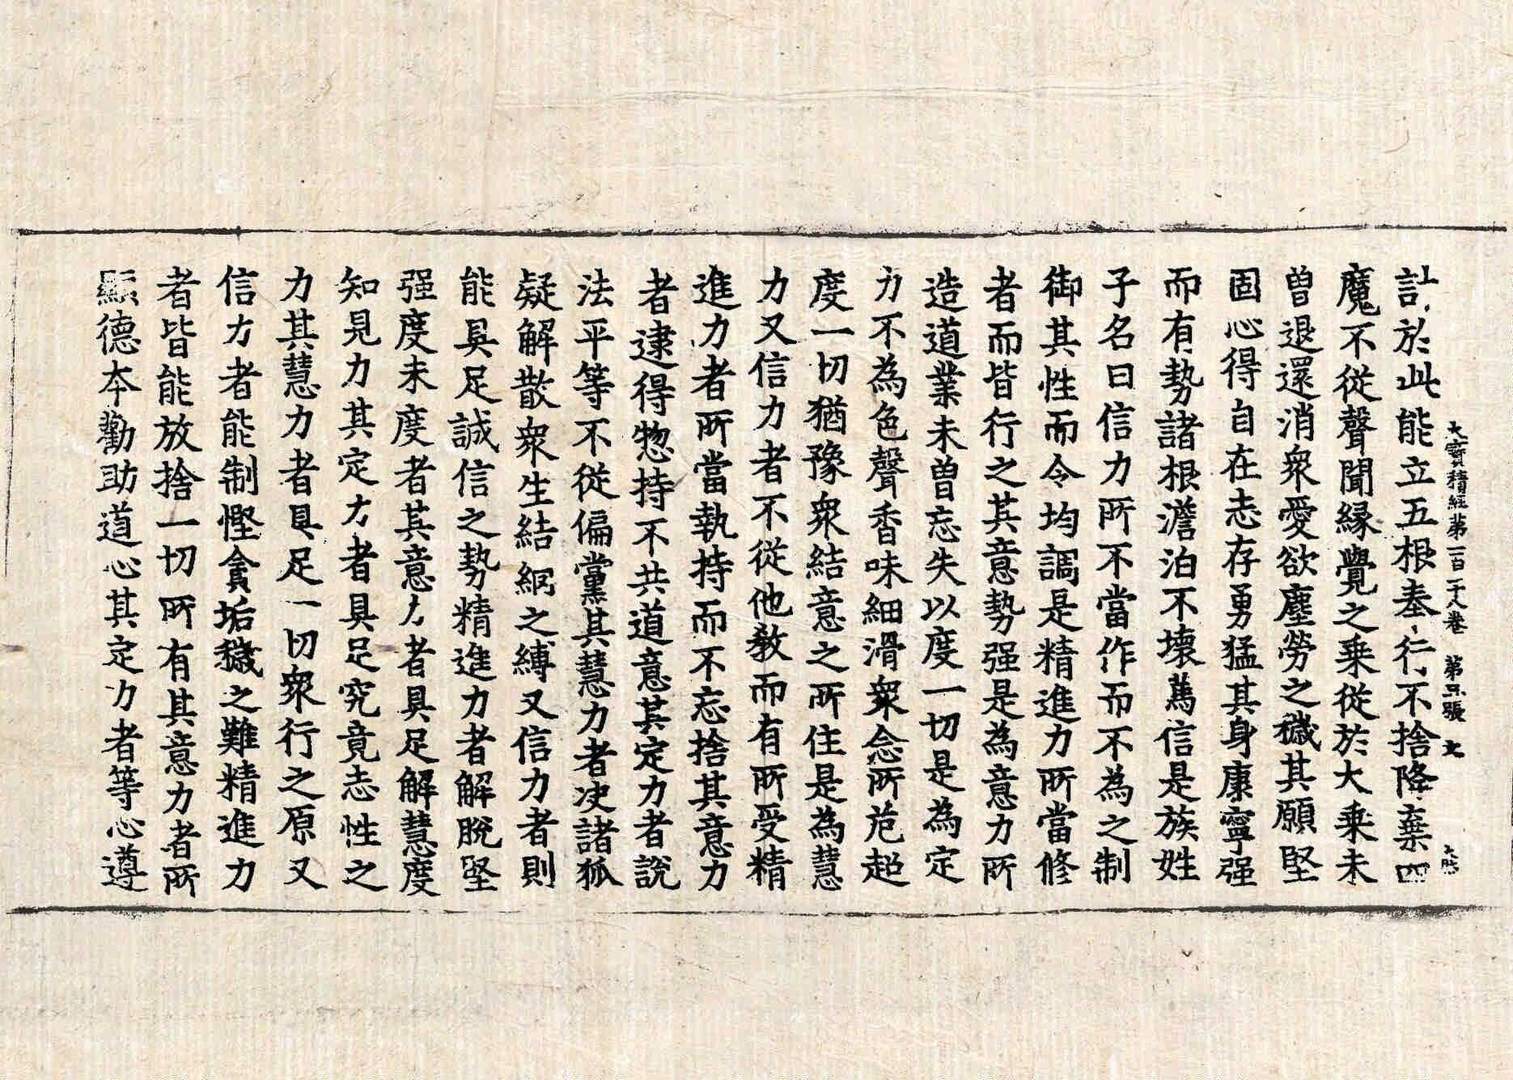 大寶積經第一百一十八卷 第五張 火
計於此能立五根奉行不捨降棄四
魔不從聲聞緣覺之乘從於大乘未
曾退還消衆愛欲塵勞之穢其願堅
固心得自在志存勇猛其身康寧强
而有勢諸根澹泊不壞篤信是族姓
子名曰信力所不當作而不為之制
御其性而令均調是精進力所當修
者而皆行之其意勢强是為意力所
造道業未曾忘失以度一切是為定
力不為色聲香味細滑衆念所危超
度一切猶豫衆結意之所住是為慧
力又信力者不從他教而有所受精
進力者所當執持而不忘捨其意力
者逮得惣持不共道意其定力者說
法平等不從偏黨其慧力者决諸狐
疑解散衆生結網之縛又信力者則
能具足誠信之勢精進力者解脫堅
强度未度者其意力者具足解慧度
知見力其定力者具足究竟志性之
力其慧力者具足一切衆行之原又
信力者能制慳貪垢穢之難精進力
者皆能放捨一切所有其意力者所
顯德本勸助道心其定力者等心遵